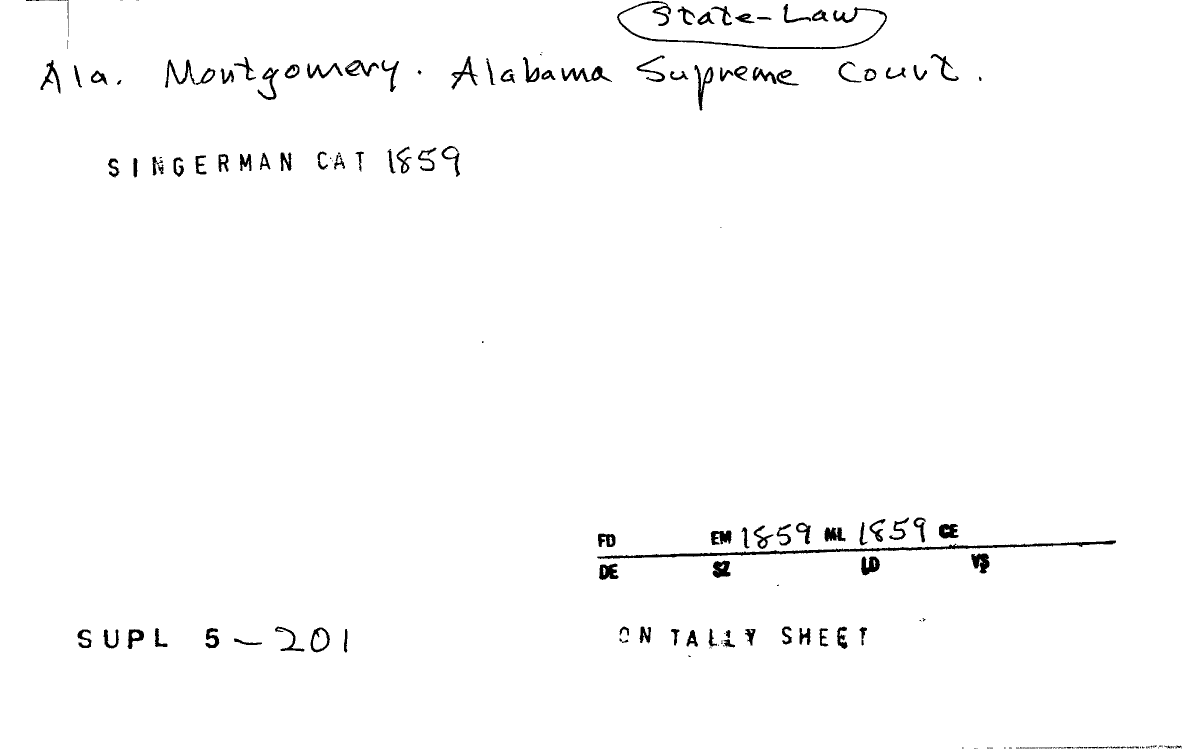 State-Law
Ala. Montgomery. Alabama Supreme Court.
SINGERMAN CAT 1859
FD EM 1859 ML 1859 CE
DE SZ LD VS
SUPL 5-201
ON TALLY SHEET